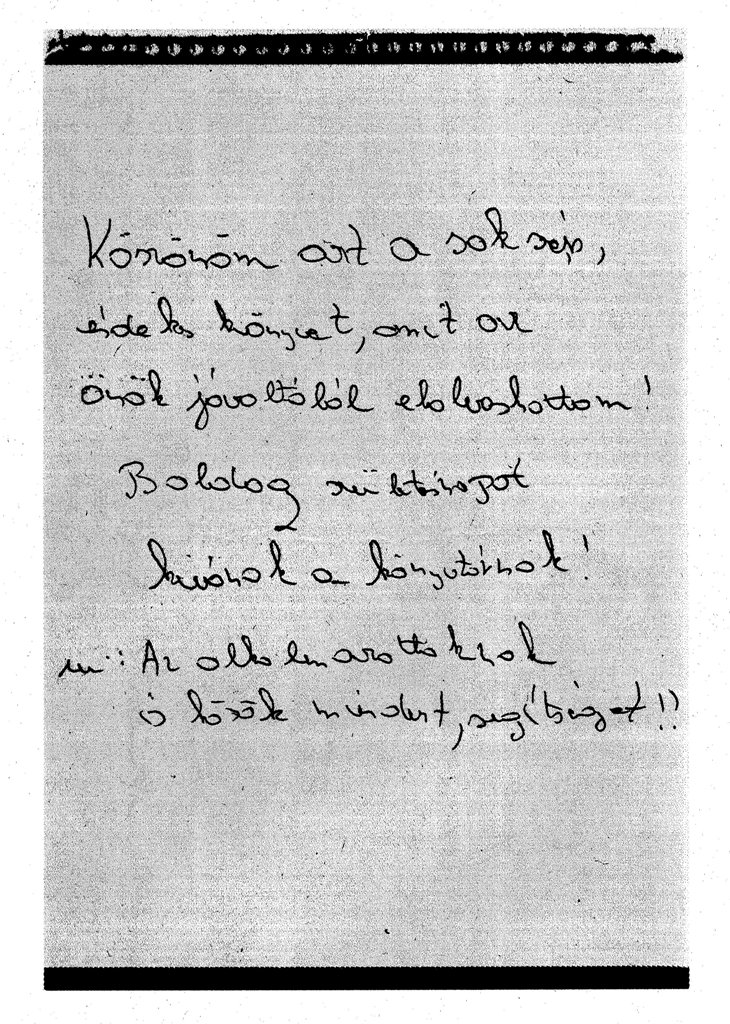 Köszönöm azt a sok szép,
érdekes könyvet, amit az
Önök jóvoltából elolvashattam!
Boldog születésnapot
kívánok a könyvtárnak!
ui.: Az alkalmazottaknak
is kösök mindent, segítséget!!